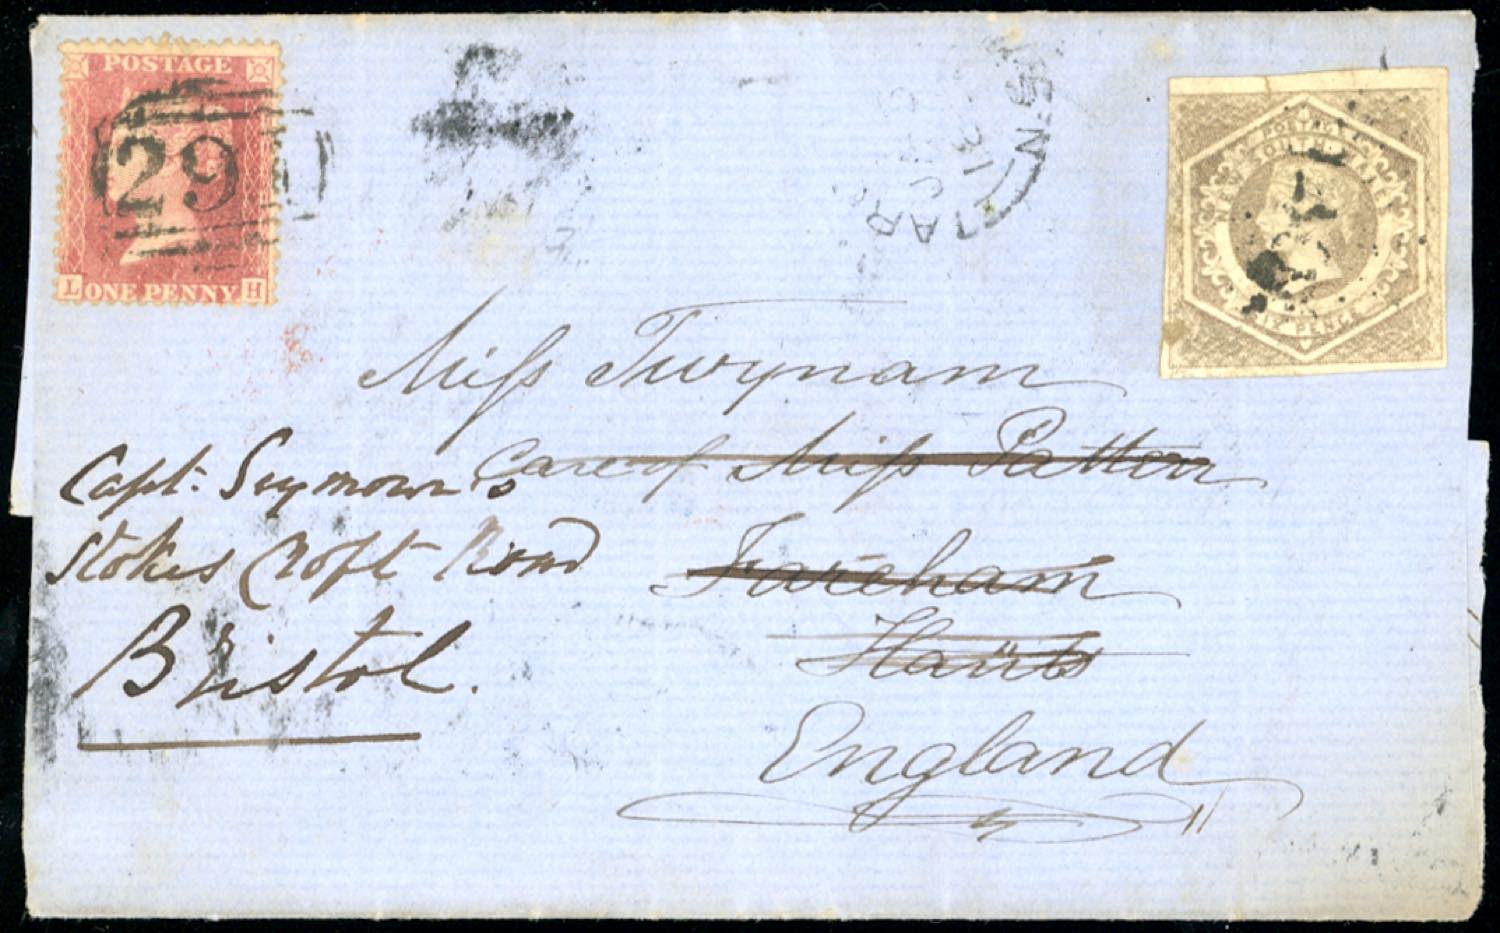 POSTAGE
29
L ONE PENNY H
POSTAGE
NEW SOUTH WALES
SIX PENCE
Miss Twynam
Care of Miss Patten
Fareham
Hants
England
Capt: Seymours
Stokes Croft Road
Bristol.